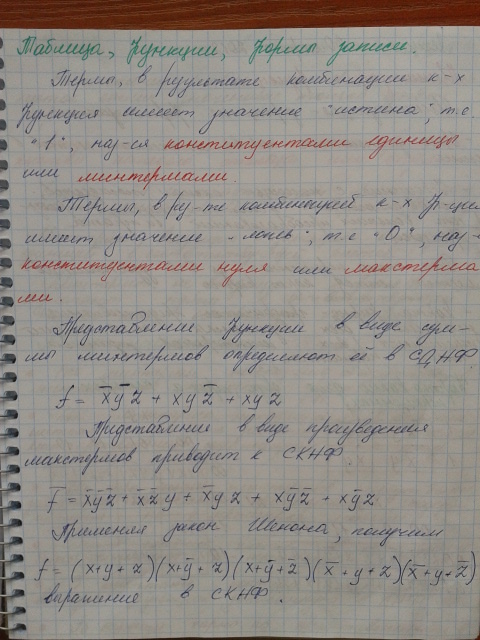 Таблица, функции, формы записи.
Термы, в результате комбинации к-х
функция имеет значение "истина", т.е
"1", наз-ся конституентами единицы
или минтермами.
Термы, в рез-те комбинацией к-х ф-ция
имеет значение - ложь", т.е "0", наз-
конституентами нуля или макстерма
ми.
Представление функции в виде сум-
мы минтермов определяют её в СДНФ.
f = x̅y̅z + xyz̅ + xyz
Представление в виде произведения
макстермов приводит к СКНФ
f̅ = x̅y̅z̅ + x̅z̅y + x̅yz + xy̅z̅ + xy̅z
Применяя закон Шенона, получим
f = (x+y+z)(x+y̅+z)(x+y̅+z̅)(x̅+y+z)(x̅+y+z̅)
выражение в СКНФ.